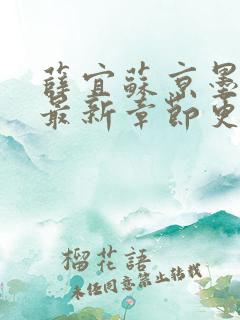 薛宜蘇京墨
最新章節更
榴花語
未经同意禁止转载